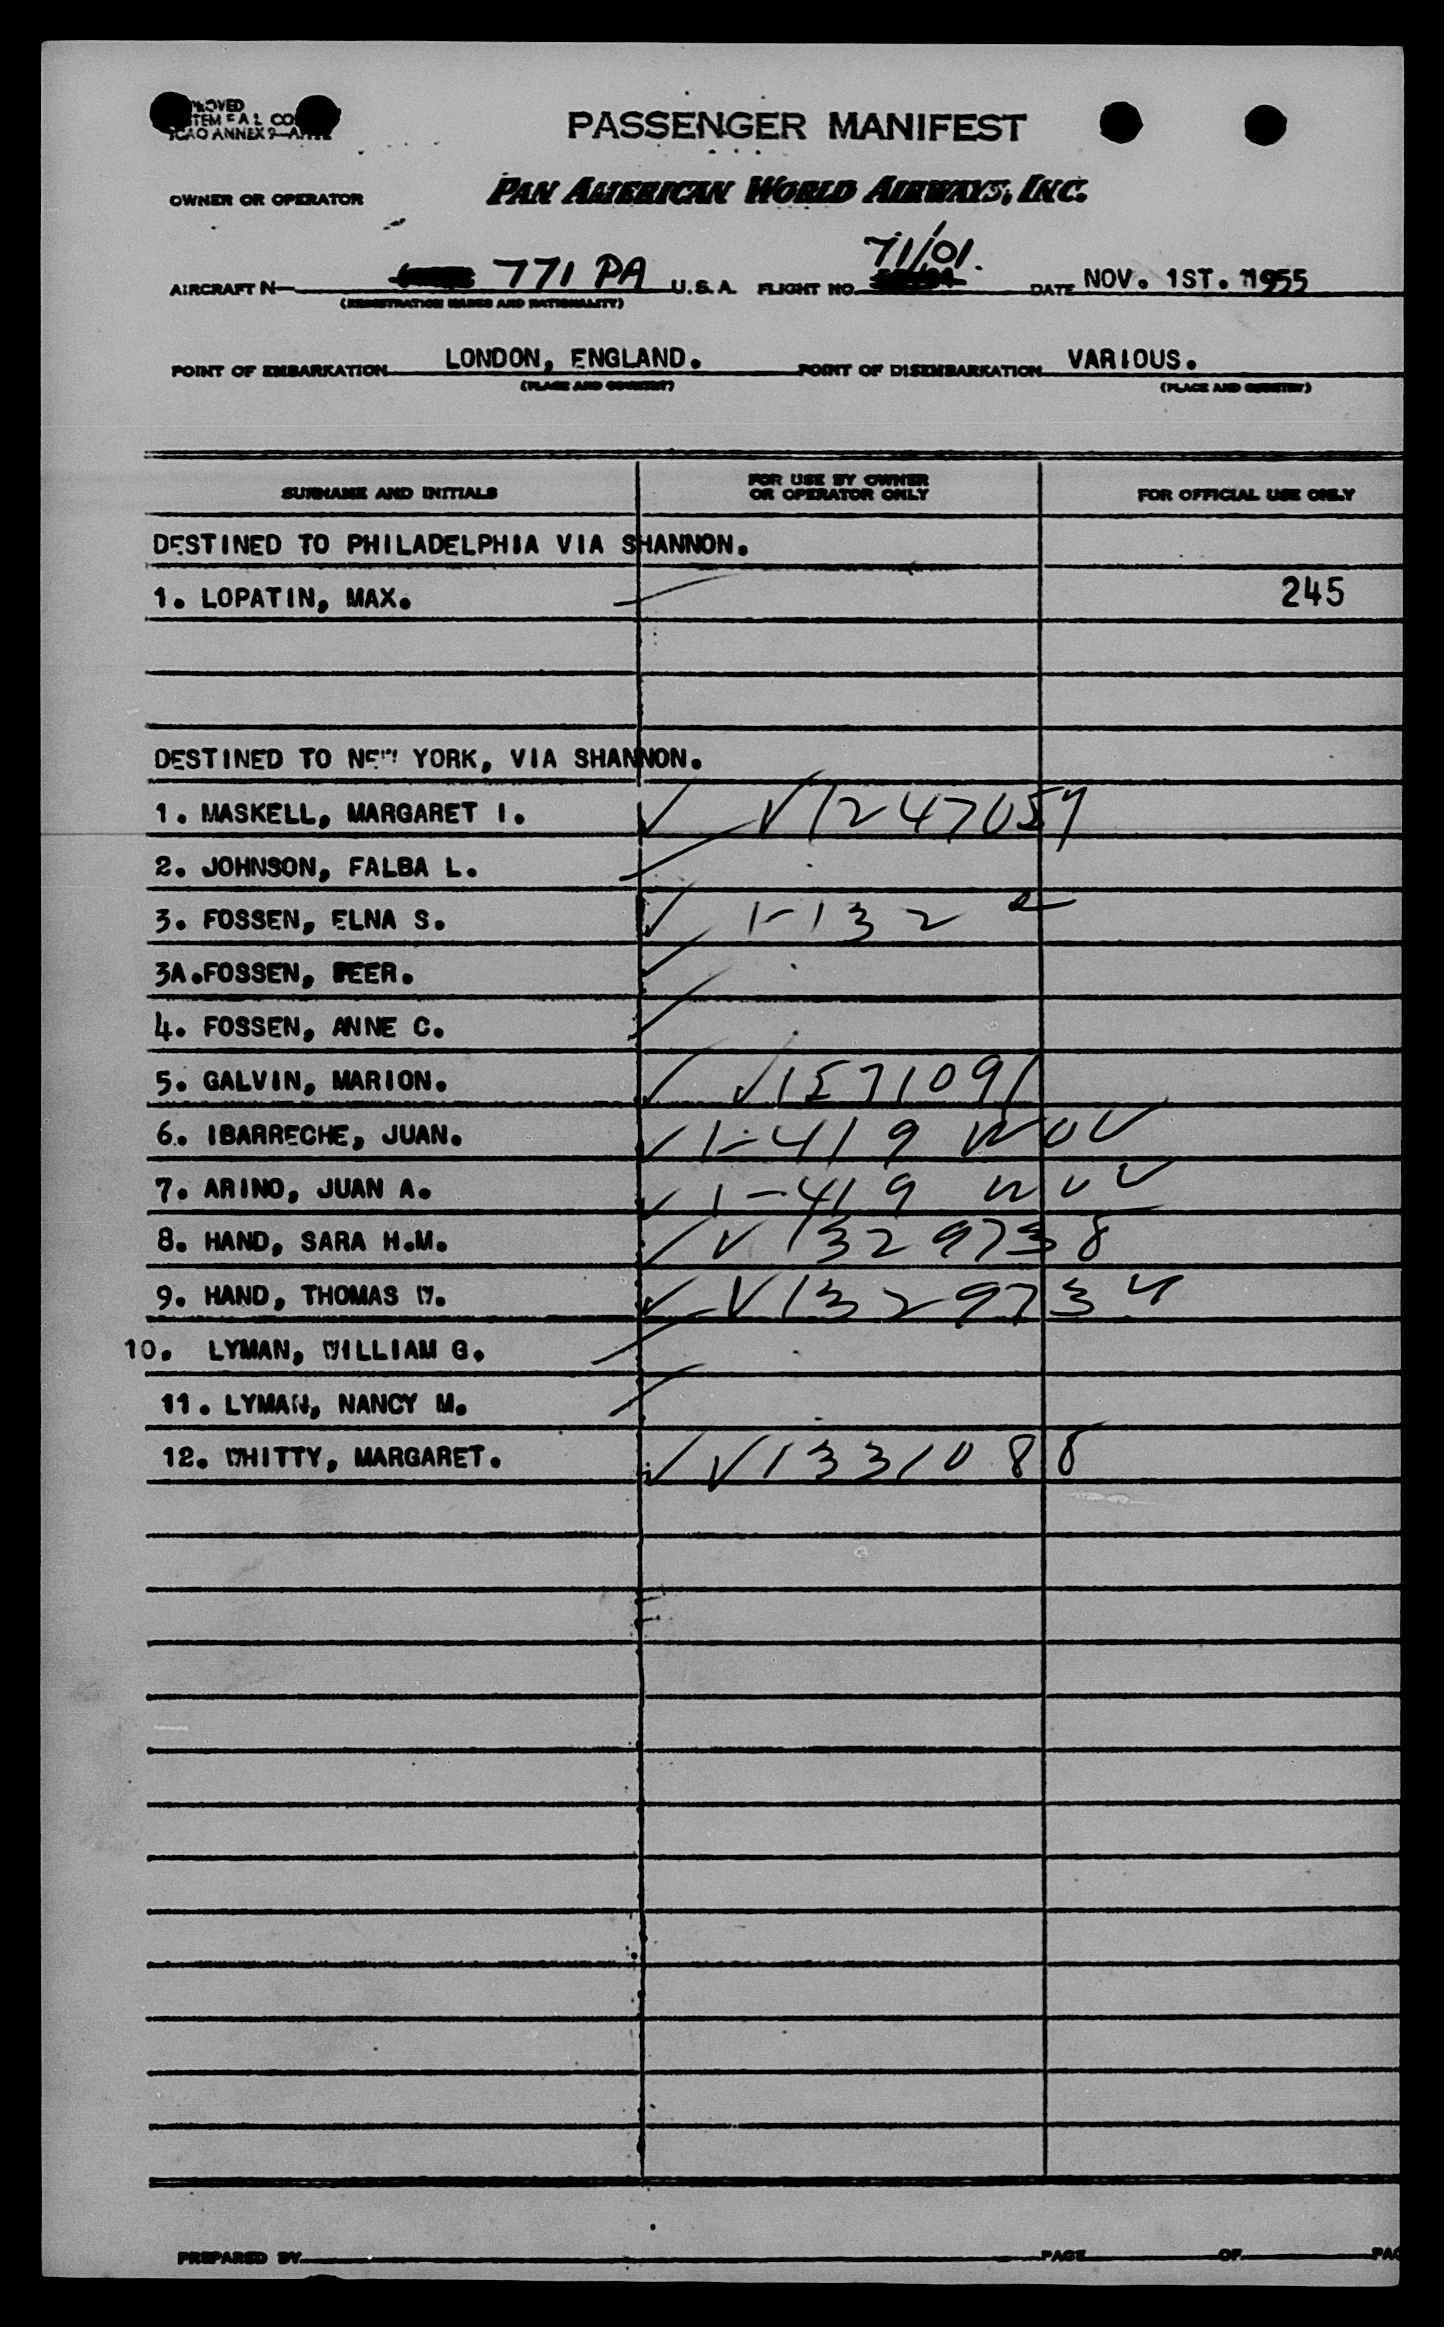 PASSENGER MANIFEST
OWNER OR OPERATOR PAN AMERICAN WORLD AIRWAYS, INC.
71/01.
AIRCRAFT N— 771 PA U.S.A. FLIGHT NO. DATE NOV. 1ST. 1955
(REGISTRATION MARKS AND NATIONALITY)
POINT OF EMBARKATION LONDON, ENGLAND. POINT OF DISEMBARKATION VARIOUS.
(PLACE AND COUNTRY) (PLACE AND COUNTRY)
SURNAME AND INITIALS FOR USE BY OWNER OR OPERATOR ONLY FOR OFFICIAL USE ONLY
DESTINED TO PHILADELPHIA VIA SHANNON.
1. LOPATIN, MAX. 245
DESTINED TO NEW YORK, VIA SHANNON.
1. MASKELL, MARGARET I. ✓ ✓ 1247057
2. JOHNSON, FALBA L.
3. FOSSEN, ELNA S. ✓ 1-132
3A. FOSSEN, PEER. ✓
4. FOSSEN, ANNE C. ✓
5. GALVIN, MARION. ✓ ✓ 1571091
6. IBARRECHE, JUAN. ✓ 1-419 NOV
7. ARINO, JUAN A. ✓ 1-419 NOV
8. HAND, SARA H.M. ✓ ✓ 1329738
9. HAND, THOMAS W. ✓ ✓ 1329734
10. LYMAN, WILLIAM G.
11. LYMAN, NANCY M.
12. WHITTY, MARGARET. ✓ ✓ 1331088
PREPARED BY PAGE OF